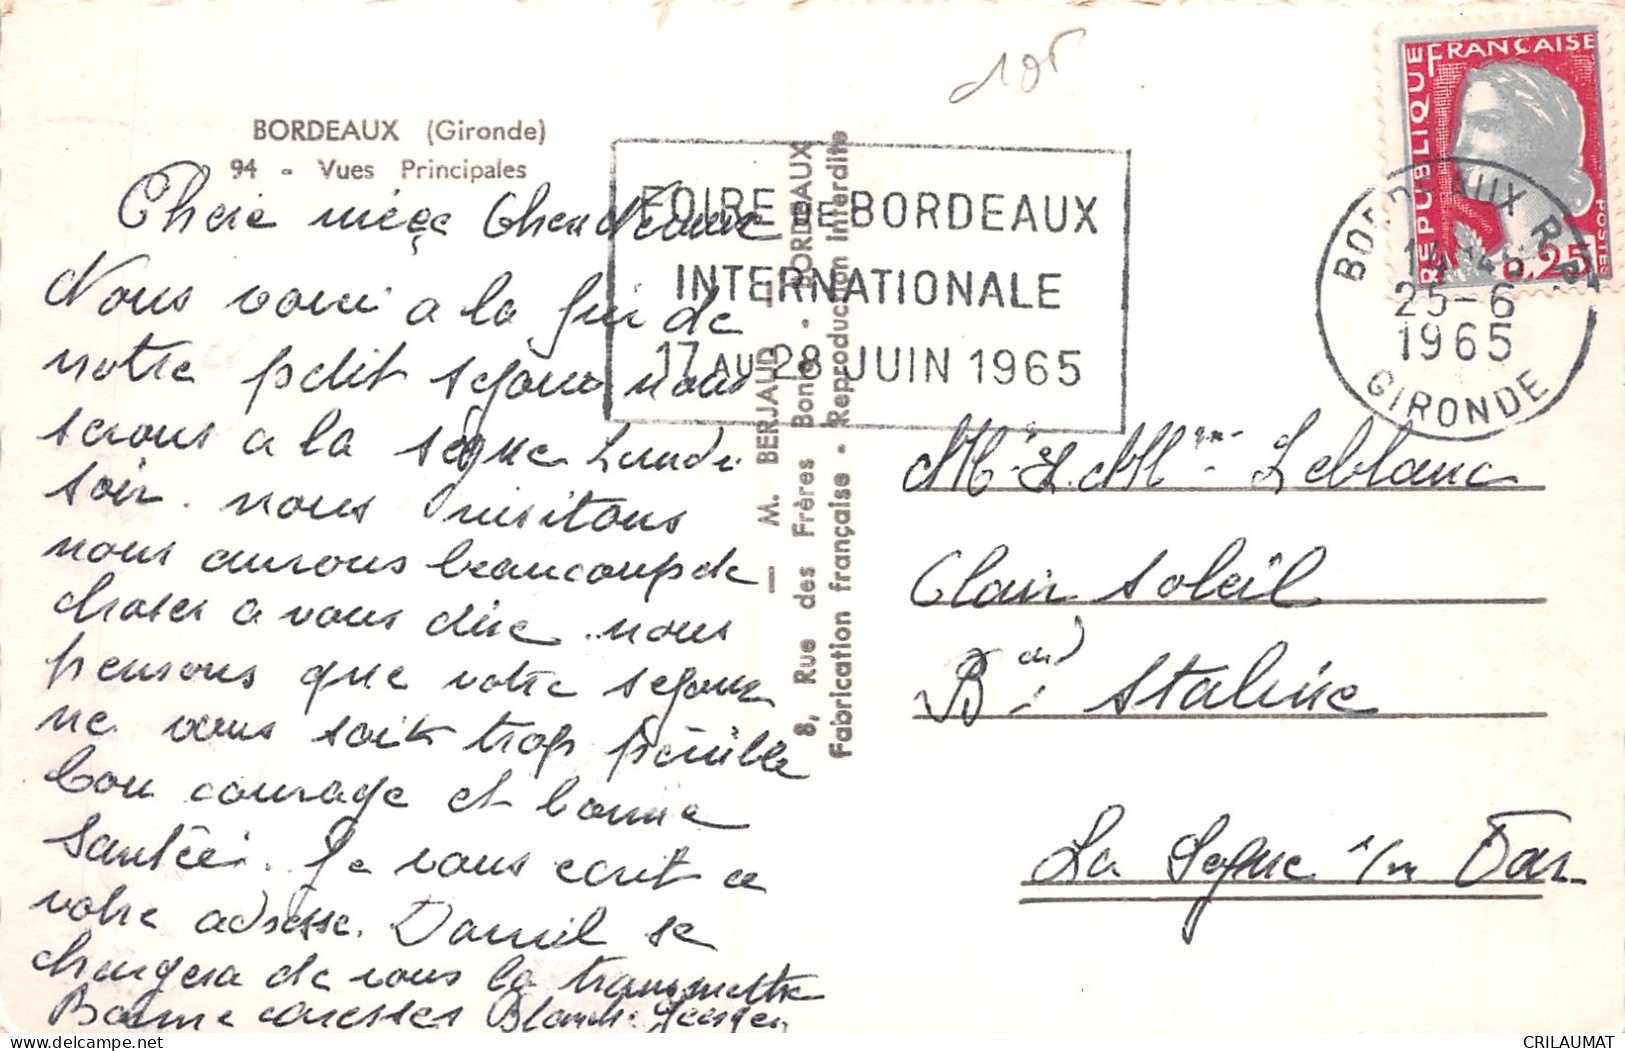 105
BORDEAUX (Gironde)
94 - Vues Principales
Cherie niece Cher
Nous voici a la fin de
notre petit sejour nous
serons a la Seyne Lundi
soir. nous visitons
nous aurons beaucoup de
choses a vous dire. nous
pensons que votre sejour
ne vous soit trop penible
bon courage et bonne
Santée. Je vous ecrit a
votre adresse. Daniel se
chargera de vous la transmettre
Bonne caresses Blanche Georges
M. BERJAUD - BORDEAUX
8, Rue des Frères Bonie -
Fabrication française - Reproduction interdite
FOIRE DE BORDEAUX
INTERNATIONALE
17 AU 28 JUIN 1965
REPUBLIQUE FRANÇAISE
POSTES
0,25
BORDEAUX R.P.
25-6
1965
GIRONDE
Mr & Mme Leblanc
Clair Soleil
Bard Staline
La Seyne s/m Var
CRILAUMAT